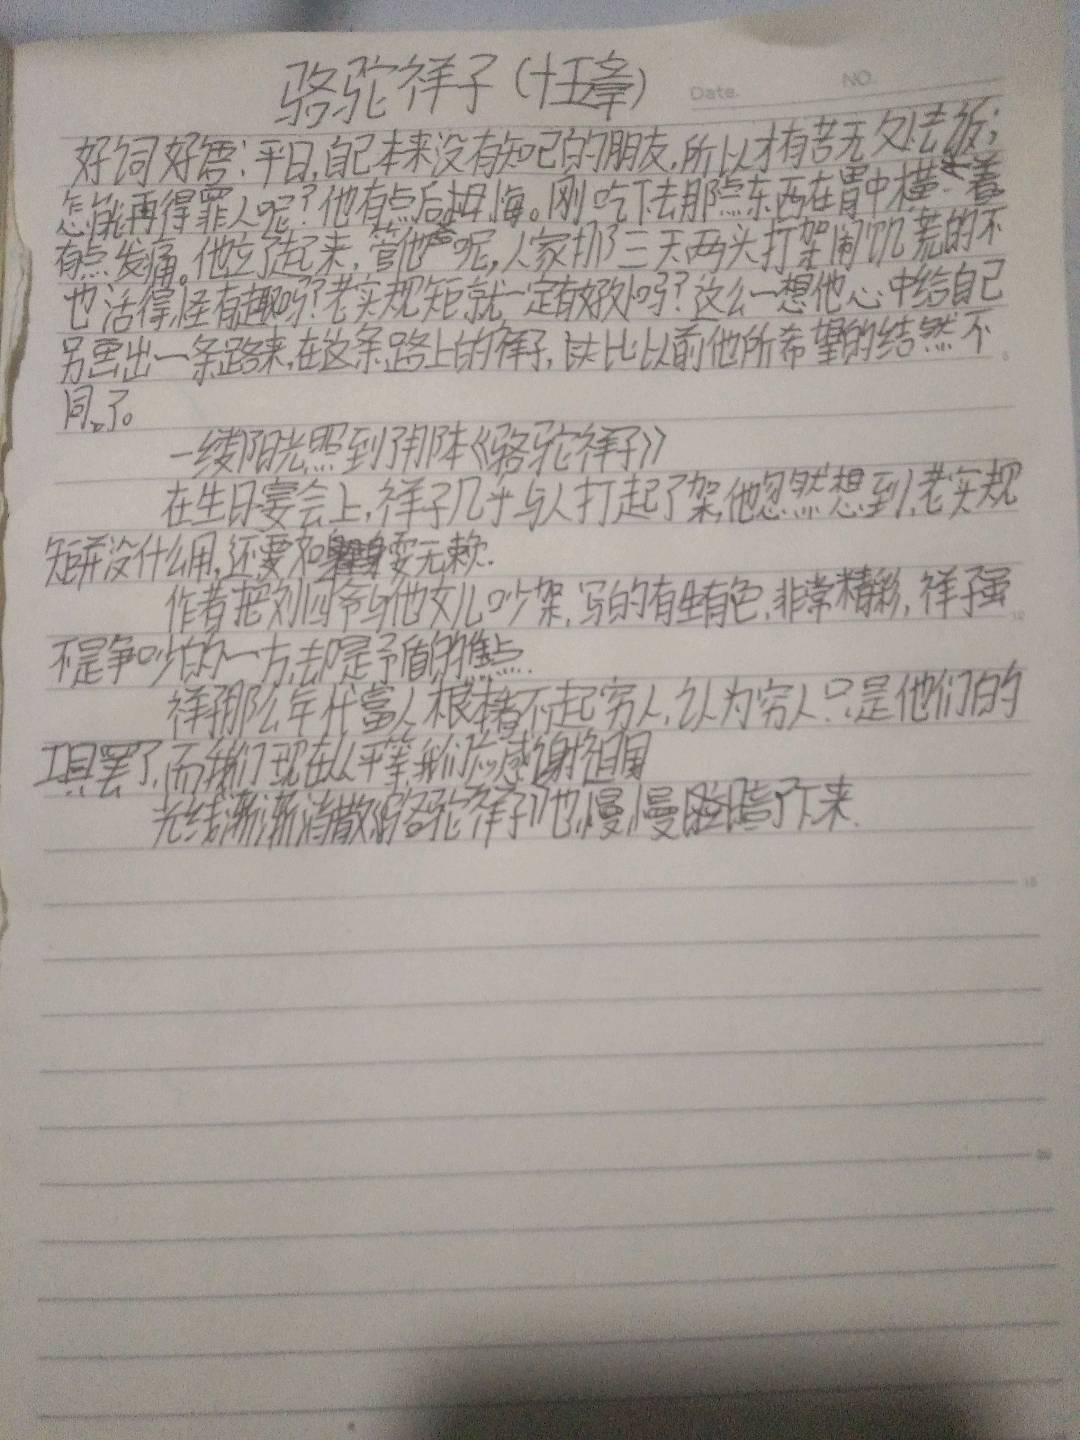 骆驼祥子(十五章)
Date. NO.
好词好语:平日,自己本来没有知己的朋友,所以才有苦无处去诉;
怎能再得罪人呢?他有点后悔。刚吃下去那点东西在胃中横着
有点发痛。他立了起来,管他呢,人家那三天两头打架闹饥荒的不
也活得怪有趣吗?老实规矩就一定有好处吗?这么一想他心中给自己
另画出一条路来,在这条路上的祥子,与以前他所希望的结然不
同了。
一缕阳光照到了那本《骆驼祥子》
在生日宴会上,祥子几乎与人打起了架,他忽然想到,老实规
矩并没什么用,还要耍无赖.
作者把刘四爷与他女儿吵架,写的有生有色,非常精彩,祥子虽
不是争吵的一方,却是矛盾的焦点.
祥子那么年代富人根本看不起穷人,认为穷人只是他们的
工具罢了,而我们现在人人平等我们应感谢祖国
光线渐渐消散,《骆驼祥子》也慢慢暗了下来.